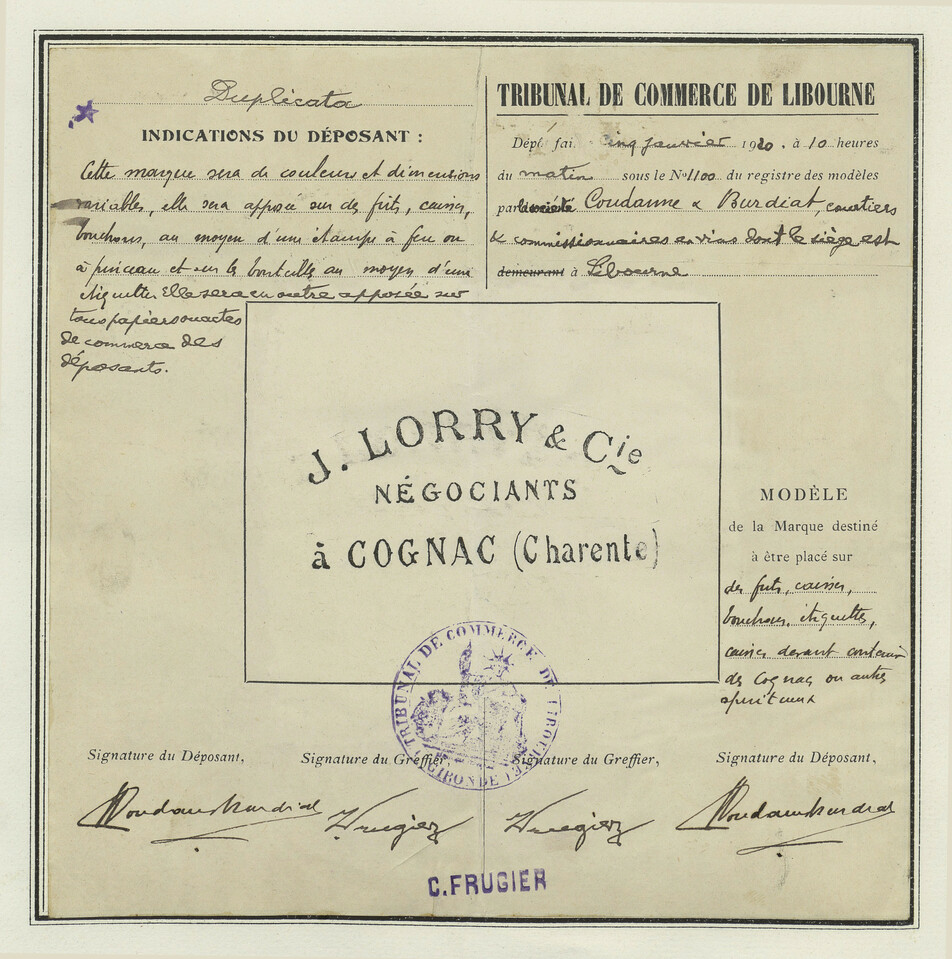 Duplicata
INDICATIONS DU DÉPOSANT :
Cette marque sera de couleurs et dimensions
variables, elle sera apposée sur des futs, caisses,
bouchons, au moyen d'une étampe à feu ou
à pinceau et sur les bouteilles au moyen d'une
étiquette. Elle sera en outre apposée sur
tous papiers ou actes
de commerce des
déposants.
TRIBUNAL DE COMMERCE DE LIBOURNE
Dépôt fai cinq janvier 1920. à 10 heures
du matin sous le No 1100 du registre des modèles
par la société Coudanne & Burdiat, courtiers
& commissionnaires en vins dont le siège est
demeurant à Libourne
J. LORRY & Cie
NÉGOCIANTS
à COGNAC (Charente)
MODÈLE
de la Marque destiné
à être placé sur
des futs, caisses,
bouchons, étiquettes,
caisses devant contenir
des Cognac ou autres
spiritueux
TRIBUNAL DE COMMERCE DE LIBOURNE
GIRONDE
Signature du Déposant,
Signature du Greffier,
Signature du Greffier,
Signature du Déposant,
Coudanne Burdiat
Frugier
Frugier
Coudanne Burdiat
C. FRUGIER